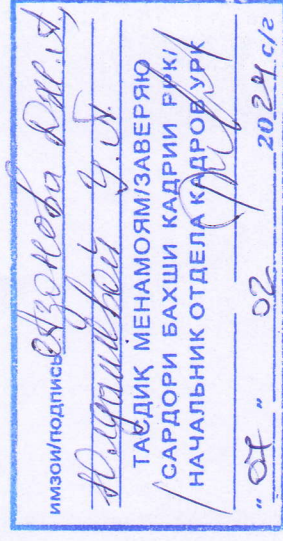 ИМЗОИ/ПОДПИСЬ Азонова Дж. А.
Юлдашевой У. А.
ТАСДИҚ МЕНАМОЯМ/ЗАВЕРЯЮ
САРДОРИ БАХШИ КАДРИИ РРК/
НАЧАЛЬНИК ОТДЕЛА КАДРОВ УРК
" 07 " 02 2024 с/г